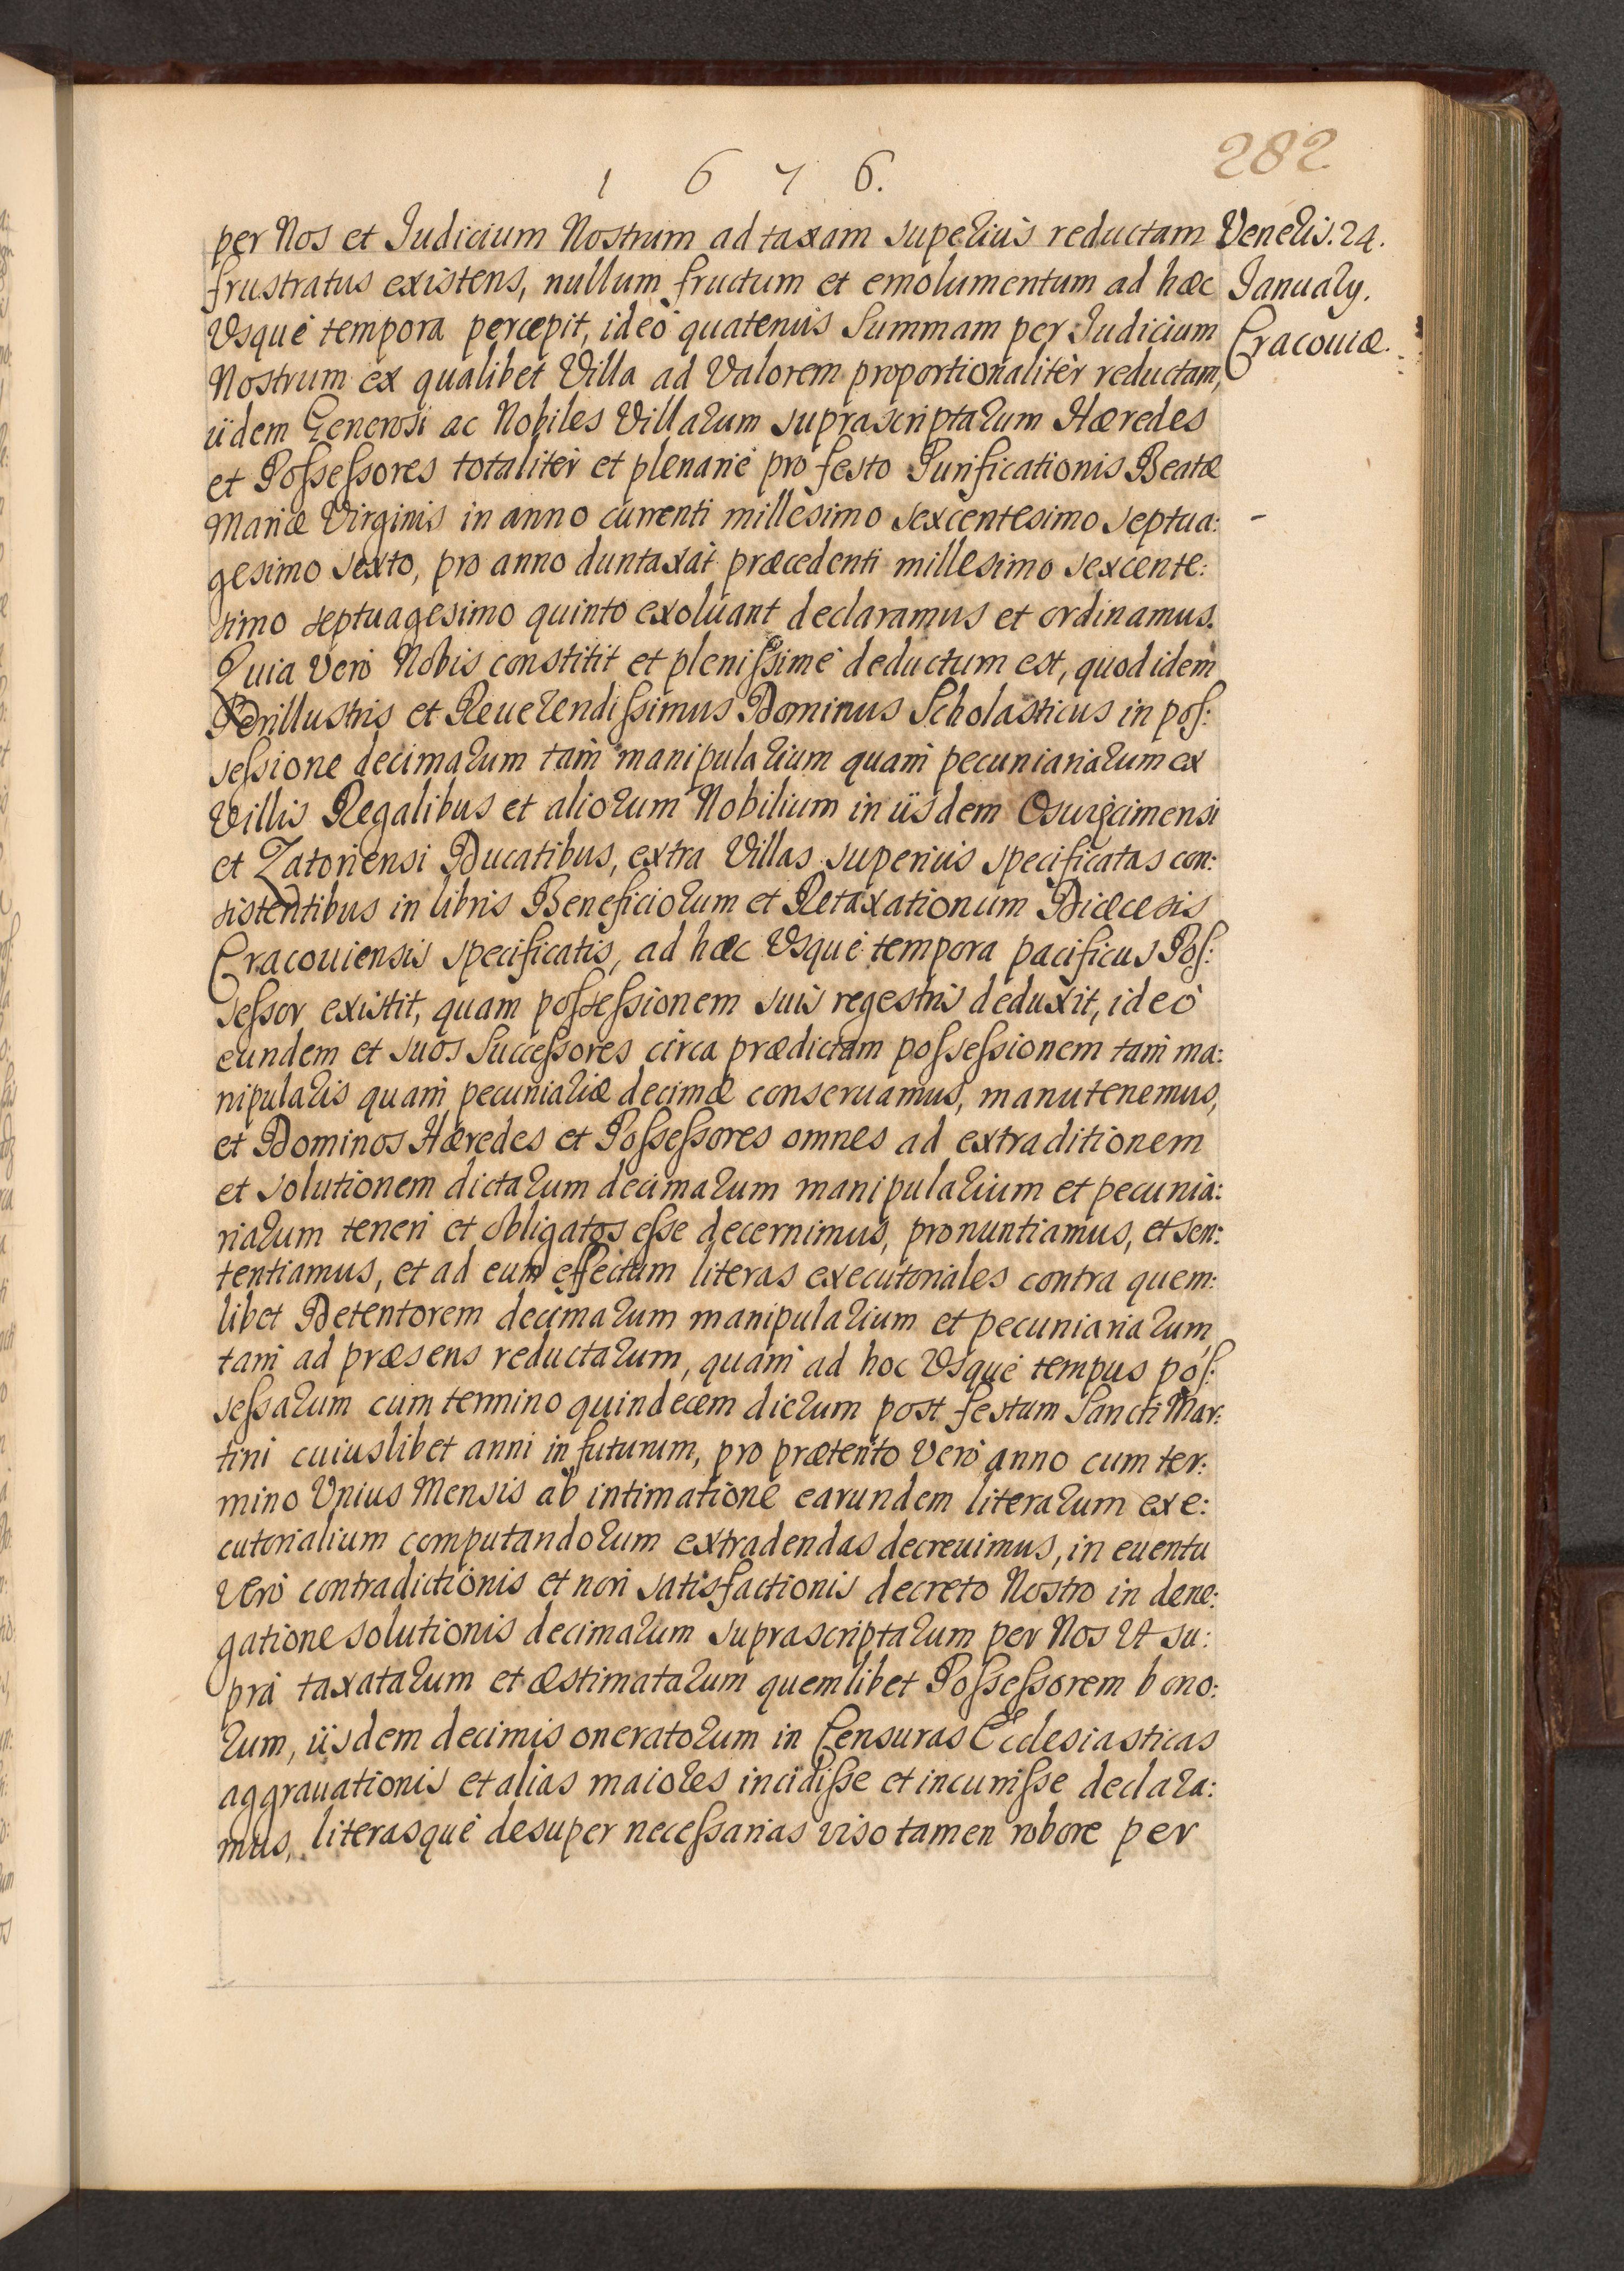 282
1676.
per Nos et Iudicium Nostrum ad taxam superius reductam
frustratus existens, nullum fructum et emolumentum ad hæc
Vsque tempora percepit, ideò quatenus Summam per Iudicium
Nostrum ex qualibet Villa ad Valorem proportionalitèr reductam,
ijdem Generosi ac Nobiles Villarum suprascriptarum Hæredes
et Possessores totalitèr et plenariè pro festo Purificationis Beatæ
Mariæ Virginis in anno currenti millesimo sexcentesimo septua:
gesimo sexto, pro anno duntaxat præcedenti millesimo sexcente:
simo septuagesimo quinto exoluant declaramus et ordinamus.
Quia Verò Nobis constitit et plenissimè deductum est, quod idem
Perillustris et Reuerendissimus Dominus Scholasticus in pos:
sessione decimarum tàm manipularium quàm pecuniariarum ex
Villis Regalibus et aliorum Nobilium in ijsdem Osuiecimensi
et Zatoriensi Ducatibus, extra Villas superius specificatas con:
sistentibus in libris Beneficiorum et Retaxationum Diæcesis
Cracouiensis specificatis, ad hæc Vsque tempora pacificus Pos:
sessor existit, quam possessionem suis regestris deduxit, ideò
eundem et suos Successores circa prædictam possessionem tàm ma:
nipularis quàm pecuniariæ decimæ conseruamus, manutenemus,
et Dominos Hæredes et Possessores omnes ad extraditionem
et solutionem dictarum decimarum manipularium et pecunia:
riarum teneri et obligatos esse decernimus, pronuntiamus, et sen:
tentiamus, et ad eum effectum literas executoriales contra quem:
libet Detentorem decimarum manipularium et pecuniariarum,
tàm ad præsens reductarum, quàm ad hoc Vsque tempus pos:
sessarum cum termino quindecem dierum post festum Sancti Mar:
tini cuiuslibet anni in futurum, pro præterito Verò anno cum ter:
mino Vnius Mensis ab intimatione earundem literarum exe:
cutorialium computandorum extradendas decreuimus, in euentu
Verò contradictionis et non satisfactionis decreto Nostro in dene:
gatione solutionis decimarum suprascriptarum per Nos Vt su:
prà taxatarum et æstimatarum quemlibet Possessorem bono:
rum, ijsdem decimis oneratorum in Censuras Ecclesiasticas
aggrauationis et alias maiores incidisse et incurrisse declara:
mus, literasque desuper necessarias viso tamen robore per
Veneris. 24.
Ianuary.
Cracouiæ.